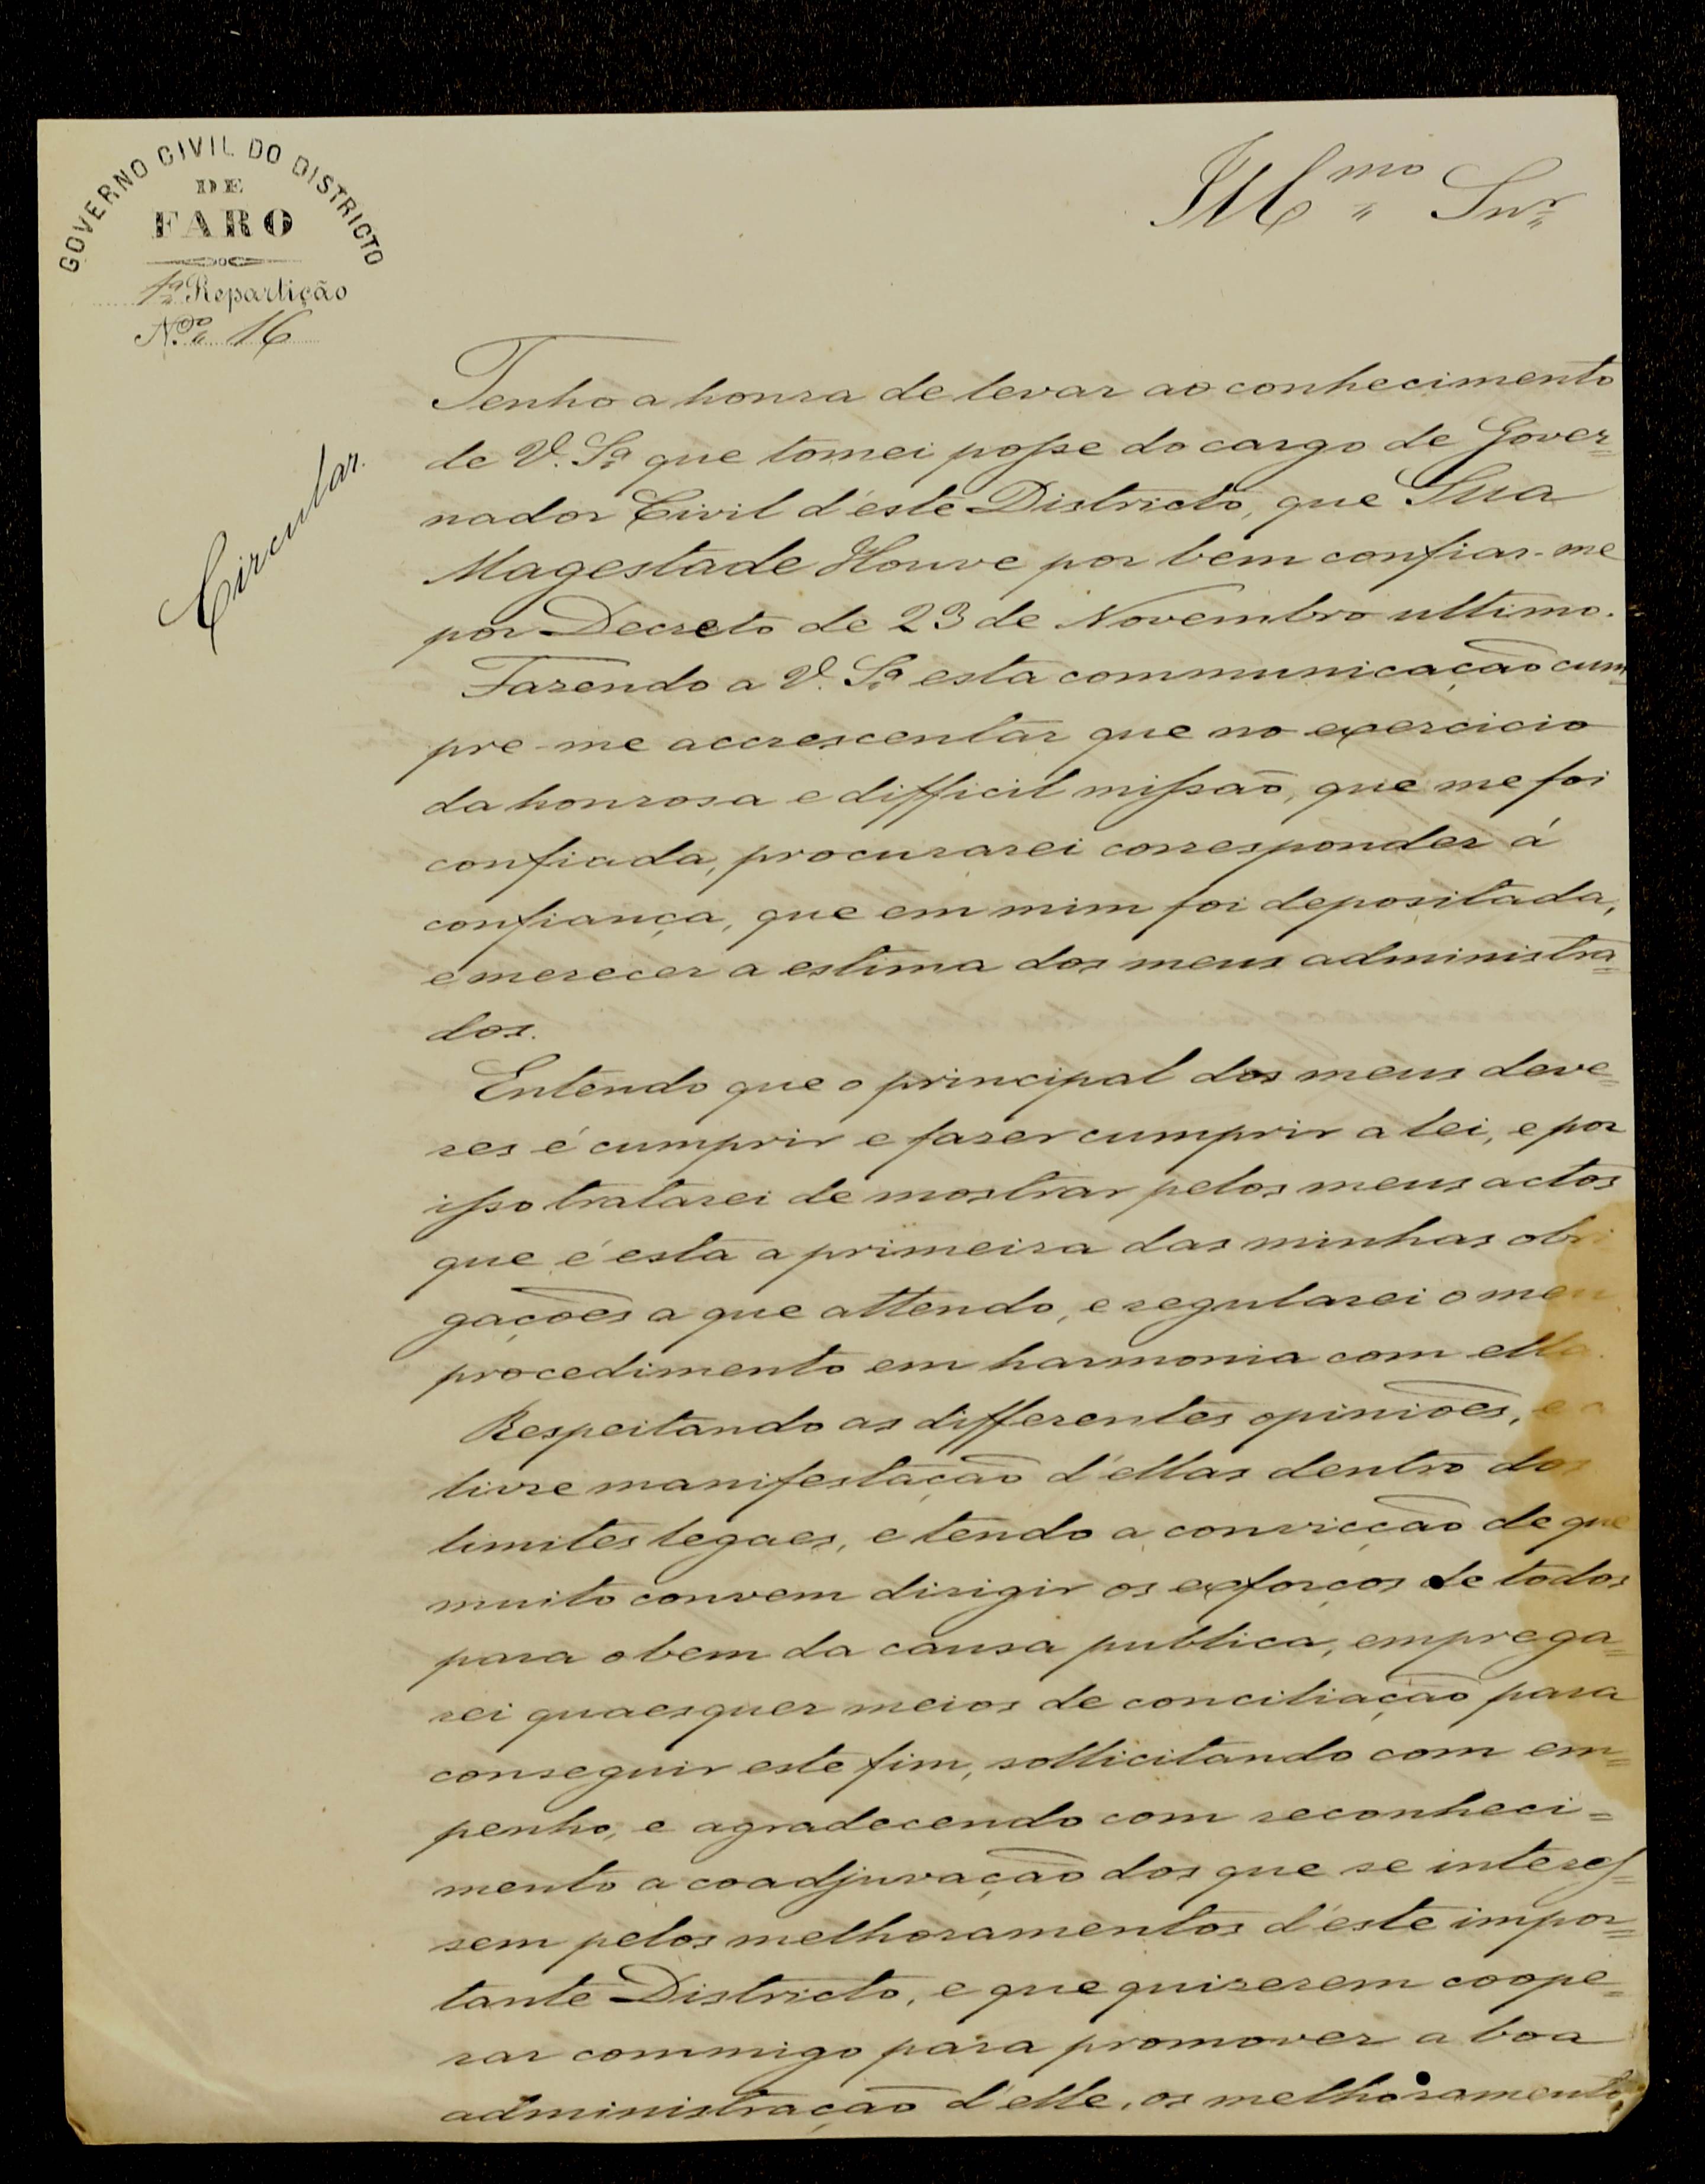 GOVERNO CIVIL DO DISTRICTO
DE
FARO
1ª Repartição
N.º 16
Illmo Snr
Circular.
Tenho a honra de levar ao conhecimento
de V. Sª que tomei posse do cargo de Gover=
nador Civil d'este Districto, que Sua
Magestade Houve por bem confiar-me
por Decreto de 23 de Novembro ultimo.
Fazendo a V. Sª esta communicação cum=
pre-me accrescentar que no exercicio
da honrosa e difficil missão, que me foi
confiada, procurarei corresponder á
confiança, que em mim foi depositada,
e merecer a estima dos meus administra=
dos.
Entendo que o principal dos meus deve=
res é cumprir e fazer cumprir a lei, e por
isso tratarei de mostrar pelos meus actos
que é esta a primeira das minhas obri
gações a que attendo, e regularei o meu
procedimento em harmonia com ella.
Respeitando as differentes opiniões, e a
livre manifestação d'ellas dentro dos
limites legaes, e tendo a convicção de que
muito convem dirigir os exforços de todos
para o bem da causa publica, emprega=
rei quaesquer meios de conciliação para
conseguir este fim, sollicitando com em=
penho, e agradecendo com reconheci=
mento a coadjuvação dos que se interes=
sem pelos melhoramentos d'este impor=
tante Districto, e que quizerem coope=
rar commigo para promover a boa
administração d'elle, os melhoramentos